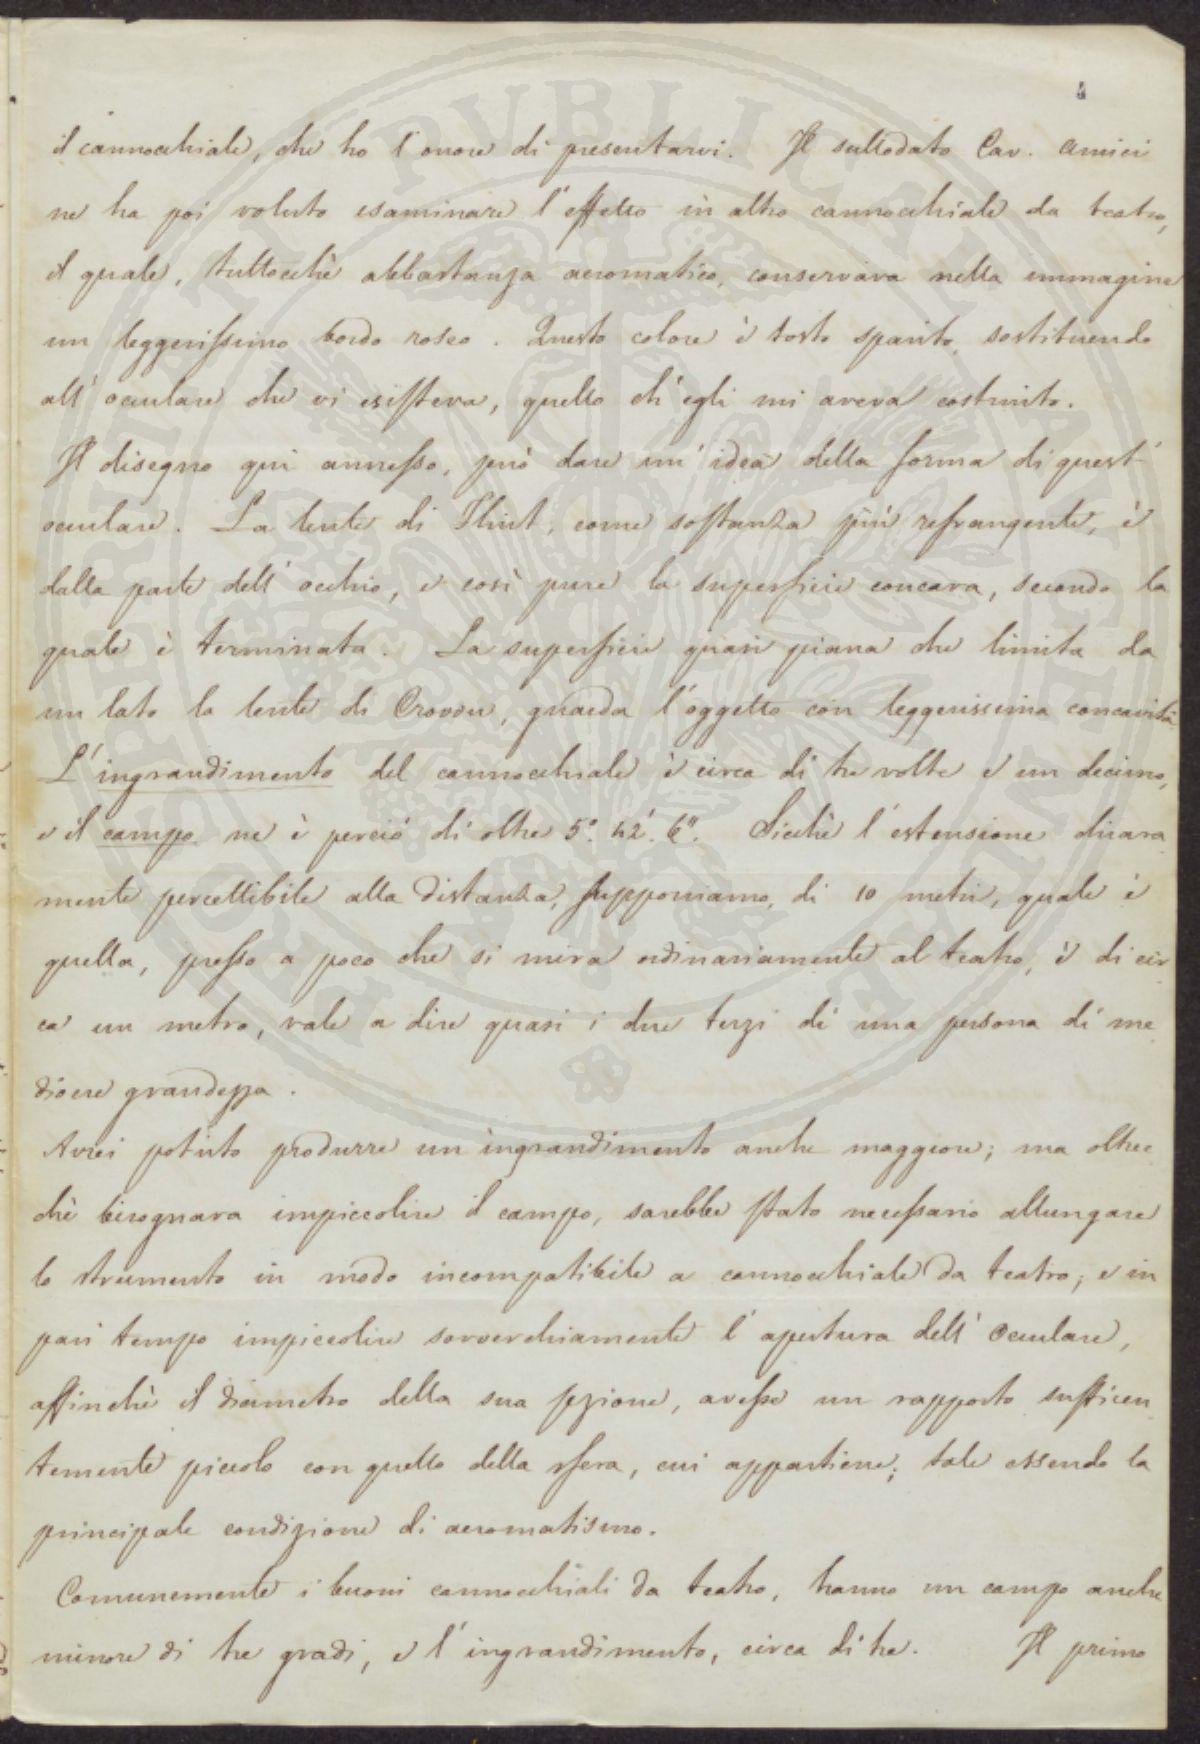 4
il cannocchiale, che ho l'onore di presentarvi. Il sullodato Cav. Amici
ne ha poi voluto esaminare l'effetto in altro cannocchiale da teatro,
il quale, tuttocchè abbastanza acromatico, conservava nella immagine
un leggerissimo bordo roseo. Questo colore è tosto sparito, sostituendo
all'oculare che vi esisteva, quello ch'egli mi aveva costruito.
Il disegno qui annesso, può dare un'idea della forma di quest'
oculare. La lente di Flint, come sostanza più refrangente, è
dalla parte dell'occhio, e così pure la superficie concava, secondo la
quale è terminata. La superficie quasi piana che limita da
un lato la lente di Crown, guarda l'oggetto con leggerissima concavità
L'ingrandimento del cannocchiale è circa di tre volte e un decimo,
e il campo ne è perciò di oltre 5°. 42'. 6". Sicchè l'estensione chiara
mente percettibile alla distanza, supponiamo, di 10 metri, quale è
quella, presso a poco che si mira ordinariamente al teatro, è di cir
ca un metro, vale a dire quasi i due terzi di una persona di me
diocre grandezza.
Avrei potuto produrre un ingrandimento anche maggiore; ma oltrec
chè bisognava impiccolire il campo, sarebbe stato necessario allungare
lo strumento in modo incompatibile a cannocchiale da teatro; e in
pari tempo impiccolire soverchiamente l'apertura dell'Oculare,
affinchè il diametro della sua sezione, avesse un rapporto sufficen
temente piccolo con quello della sfera, cui appartiene; tale essendo la
principale condizione di acromatismo.
Comunemente i buoni cannocchiali da teatro, hanno un campo anche
minore di tre gradi, e l'ingrandimento, circa di tre. Il primo